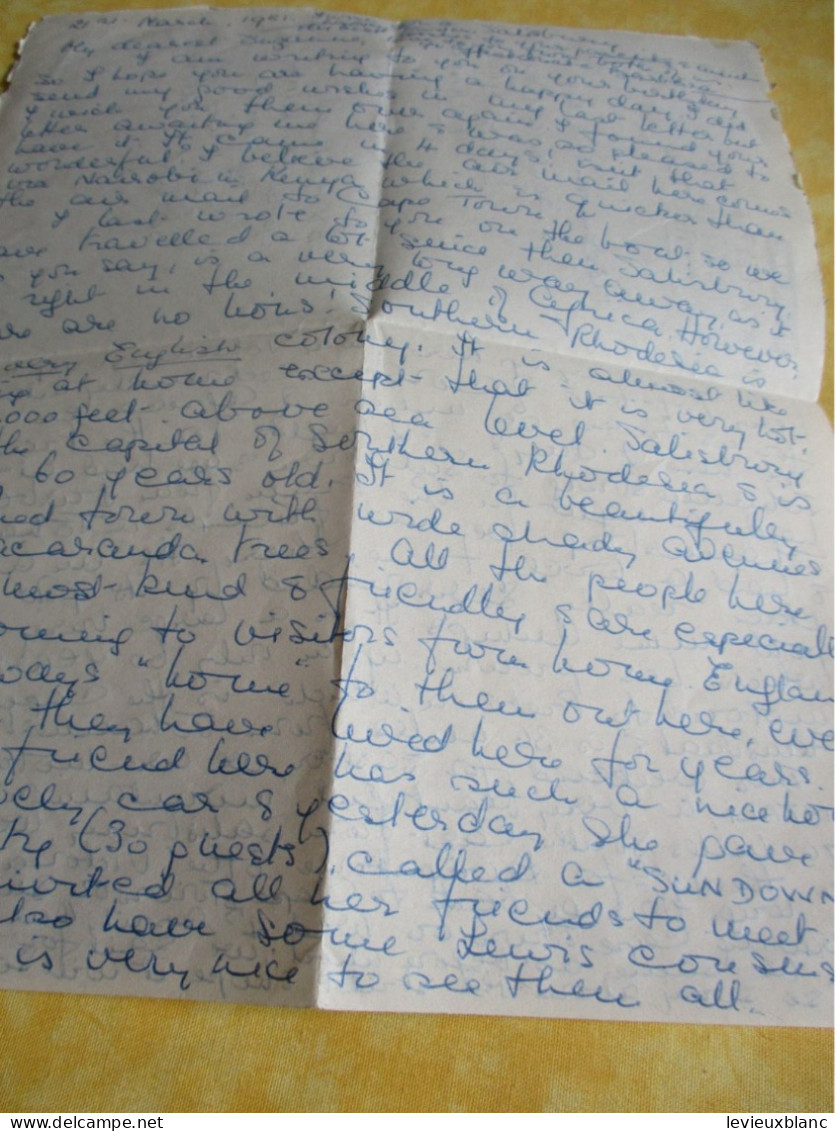 21st March, 1951.
Salisbury
My dearest Suzanne,
I am writing to you on your birthday
so I hope you are having a happy day. I did
send my good wishes in my last letter but
I wish you them over again. I found your
letter awaiting me here & was so pleased to
have it. It came in 4 days! but that
wonderful! I believe the air mail here comes
via Nairobi in Kenya which is quicker than
the air mail to Cape Town.
I last wrote to you on the boat so we
have travelled a lot since then. Salisbury,
as you say, is a very long way away, as it
right in the middle of Africa. However
are no lions! Southern Rhodesia is
very English colony. It is almost like
at home except that it is very hot.
,000 feet above sea level. Salisbury
the capital of Southern Rhodesia & is
60 years old. It is a beautifully
ned town with wide shady avenues
jacaranda trees, all the people here
most kind & friendly & are especiall
coming to visitors from home. Englan
ways "home" to them out here, eve
they have lived here for years.
friend here has such a nice ho
vely car & yesterday she gave
ty (30 guests), called a "SUNDOWN
invited all her friends to meet
also have some Lewis cousins
is very nice to see them all.
levieuxblanc